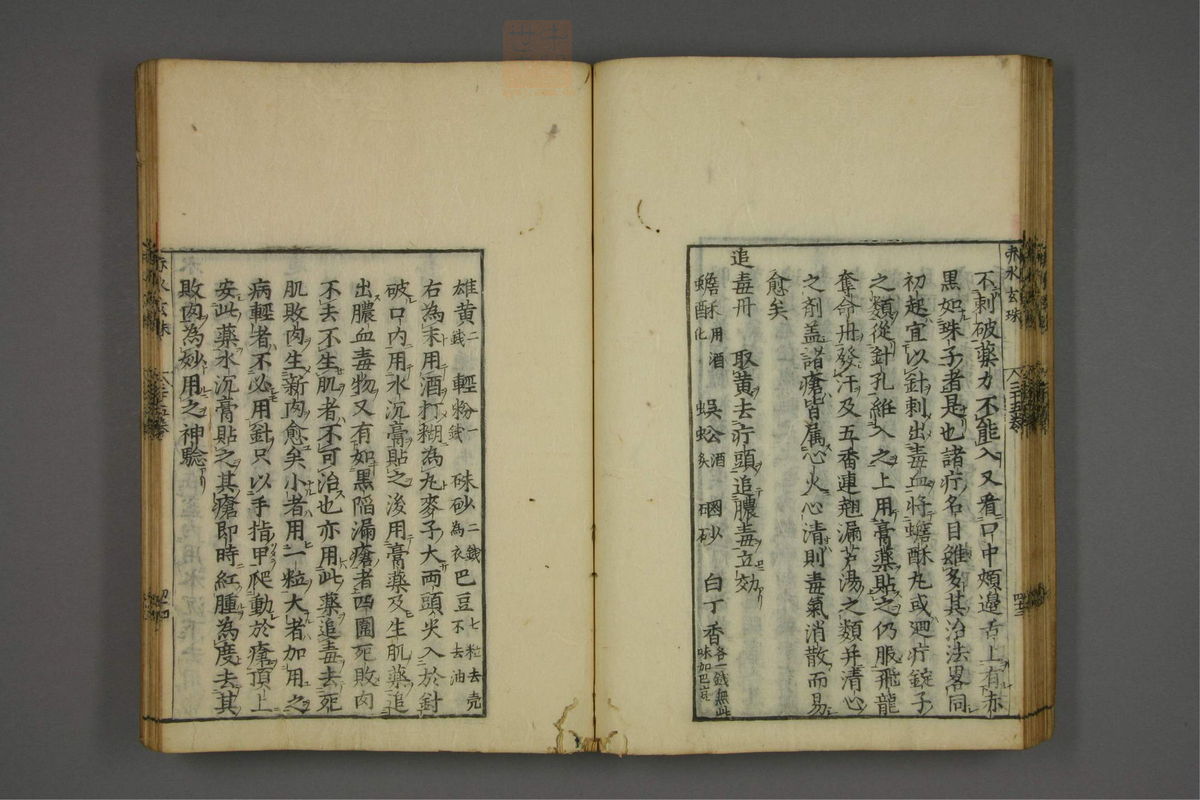 赤水玄珠
不刺破藥力不能入又看口中頰邊舌上有赤
黒如珠子者是也諸疔名目雖多其治法畧同
初起宜以針刺出毒血將蟾酥丸或廻疔錠子
之類從針孔絍入之上用膏藥貼之仍服飛龍
奪命丹發汗及五香連翹漏芦湯之類并清心
之剤盖諸瘡皆属心火心清則毒氣消散而易
愈矣
追毒丹 取黄去疔頭追膿毒立効
蟾酥用酒化 蜈蚣酒炙 硇砂 白丁香各一錢無此味加巴豆
雄黄二錢 輕粉一錢 硃砂二錢為衣 巴豆七粒去壳不去油
右為末用酒打糊為丸麥子大両頭尖入於針
破口内用水沉膏貼之後用膏藥及生肌藥追
出膿血毒物又有如黒陷漏瘡者四圍死敗肉
不去不生肌者不可治也亦用此藥追毒去死
肌敗肉生新肉愈矣小者用一粒大者加用之
病輕者不必用針只以手指甲爬動於瘡頂上
安此藥水沉膏貼之其瘡即時紅腫為度去其
敗肉為妙用之神驗
赤水玄珠